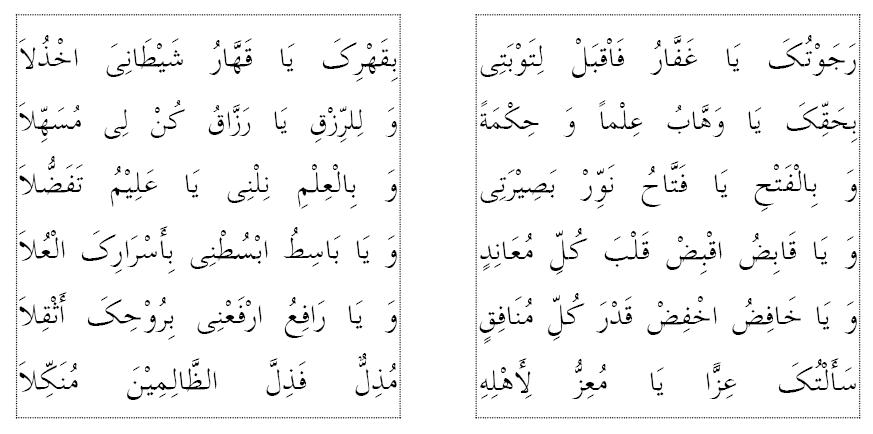 رَجَوْتُکَ یَا غَفَّارُ فَاْقبَلْ لِتَوْبَتِی بِقَهْرِکَ یَا قَهَّارُ شَیْطَانِیَ اخْذُلاَ
بِحَقِّکَ یَا وَهَّابُ عِلْماً وَ حِکْمَةً وَ لِلرِّزْقِ یَا رَزَّاقُ کُنْ لِی مُسَهِّلاَ
وَ بِالْفَتْحِ یَا فَتَّاحُ نَوِّرْ بَصِیْرَتِی وَ بِالْعِلْمِ نِلْنِی یَا عَلِیْمُ تَفَضُّلاَ
وَ یَا قَابِضُ اقْبِضْ قَلْبَ کُلِّ مُعَانِدٍ وَ یَا بَاسِطُ ابْسُطْنِی بِأَسْرَارِکَ الْعُلاَ
وَ یَا خَافِضُ اخْفِضْ قَدْرَ کُلِّ مُنَافِقٍ وَ یَا رَافِعُ ارْفَعْنِی بِرُوْحِکَ أَثْقِلاَ
سَأَلْتُکَ عِزًّا یَا مُعِزُّ لِأَهْلِهِ مُذِلٌّ فَذِلَّ الظَّالِمِیْنَ مُنَکِّلاَ